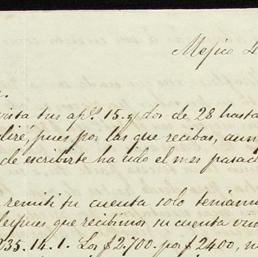 Mejico
vista tus ap.s 15. y dos de 28 hasta
dire, pues por las que recibas, aun
de escribirte ha sido el mes pasad
remiti tu cuenta solo teniamos
despues que recibimos su cuenta vin
235.14.1. Los $2.700. por $2400, n